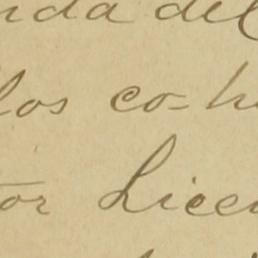 nda del
los co-h
tor Licen